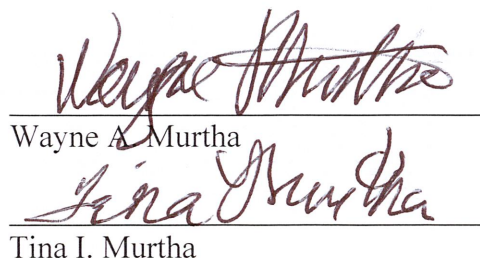 Wayne Murtha
Wayne A. Murtha
Tina Murtha
Tina I. Murtha